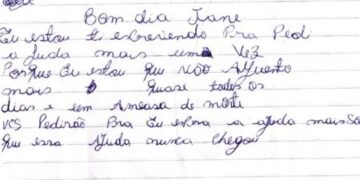 Bom dia Jane
Eu estou te escrevendo Pra Pedi
a Juda mais uma Vez
Porque Eu estou que NÃO AGuento
mais Quase todos os
dias e em Ameasa de morti
vcs Pedirão Pra Eu espera a ajuda mais Só
que essa Ajuda nunca chegou